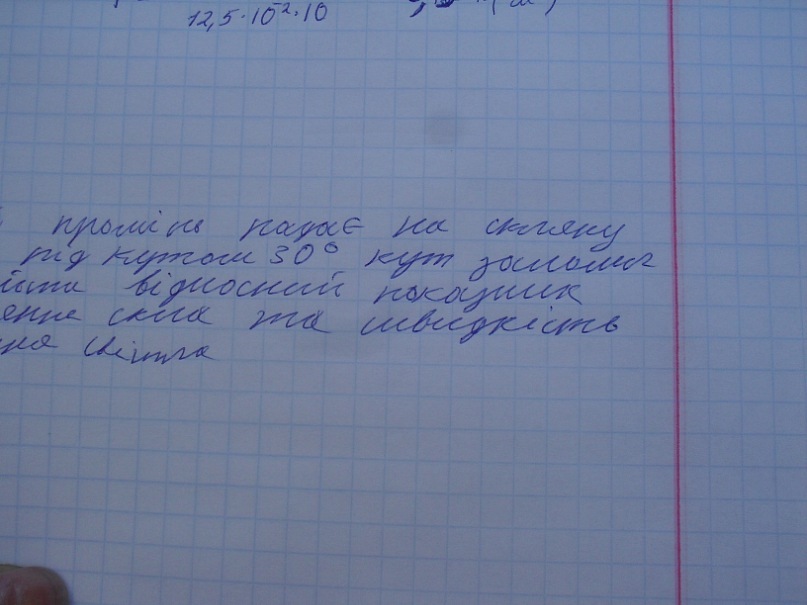 12,5·10⁻²·10
промінь падає на скляну
під кутом 30° кут залома
відносний показник
скла та швидкість
світла